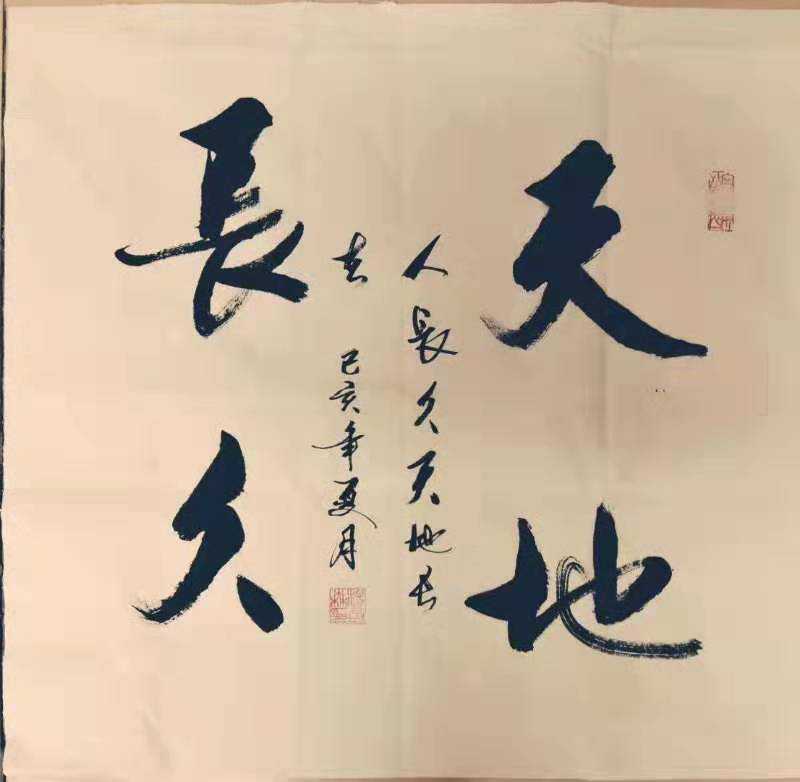 天地
長久
人長久天地长
己亥年夏月